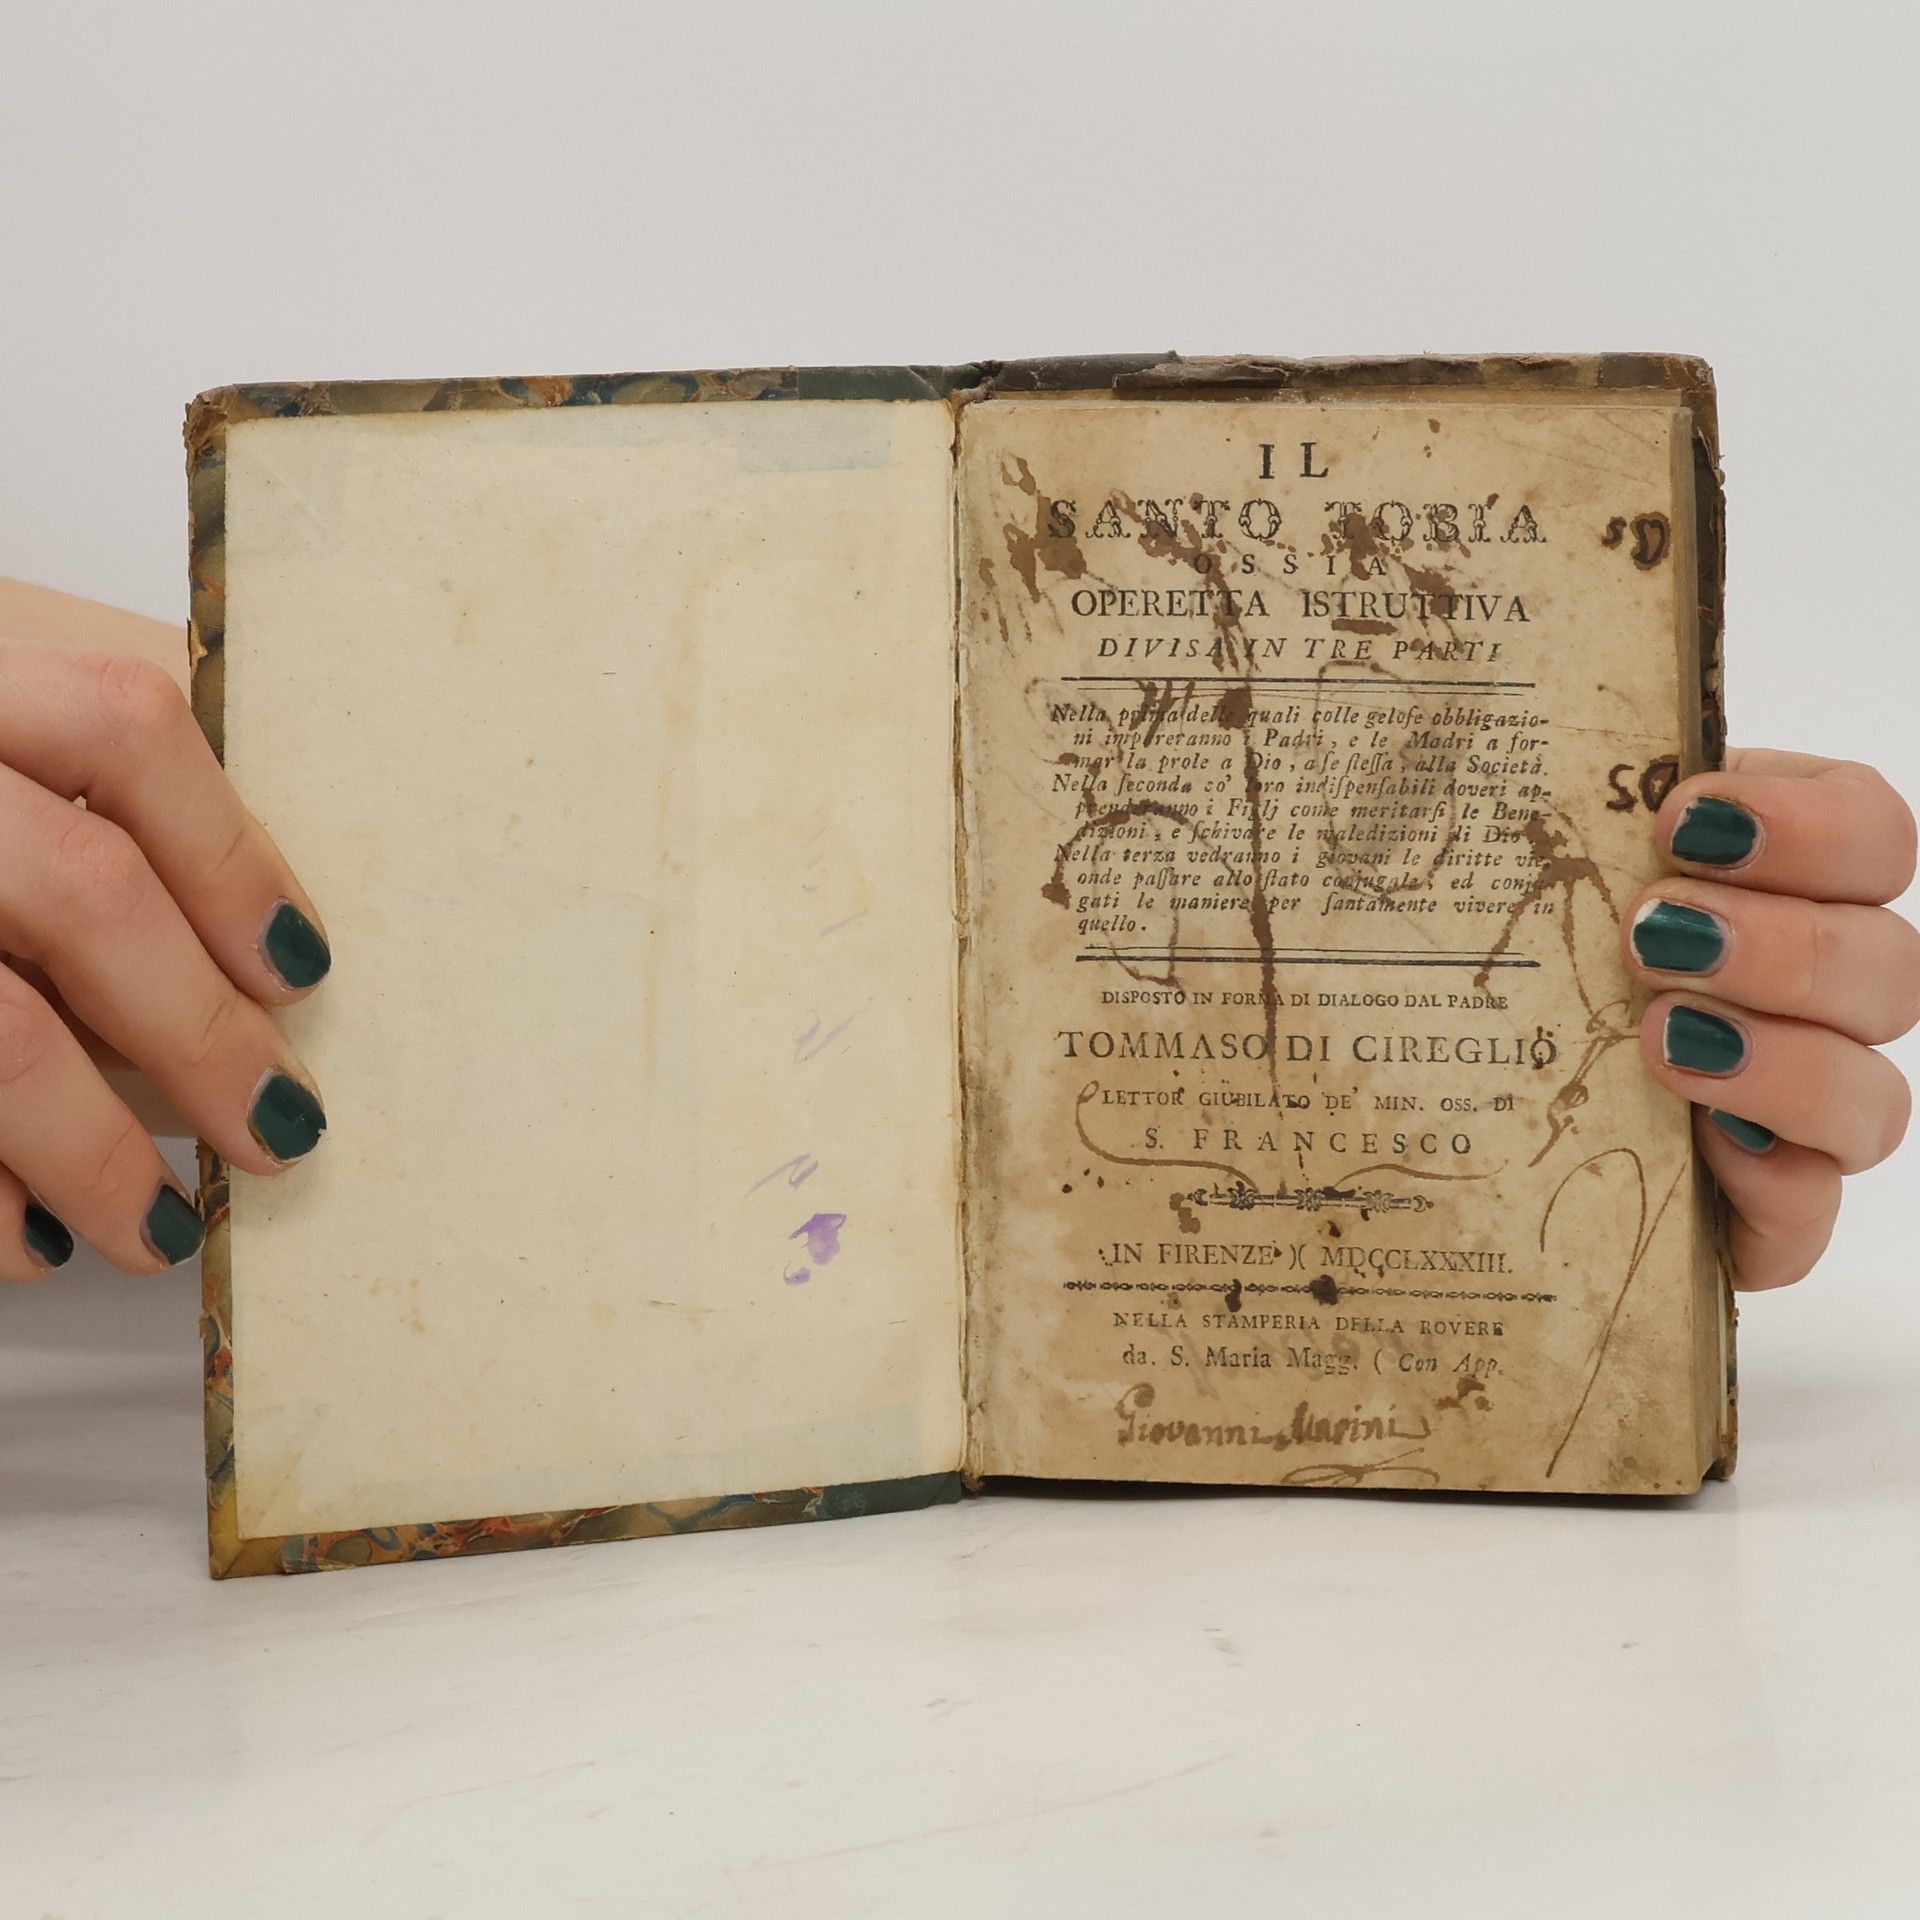 IL
SANTO TOBIA
OSSIA
OPERETTA ISTRUTTIVA
DIVISA IN TRE PARTI
Nella prima delle quali colle geloſe obbligazio-
ni impareranno i Padri, e le Madri a for-
mar la prole a Dio, a ſe ſteſſa, alla Società.
Nella ſeconda co' loro indiſpenſabili doveri ap-
prenderanno i Figlj come meritarſi le Bene-
dizioni, e ſchivare le maledizioni di Dio
Nella terza vedranno i giovani le diritte vie,
onde paſſare allo ſtato conjugale, ed conju-
gati le maniere per ſantamente vivere in
quello.
DISPOSTO IN FORMA DI DIALOGO DAL PADRE
TOMMASO DI CIREGLIO
LETTOR GIUBILATO DE' MIN. OSS. DI
S. FRANCESCO
IN FIRENZE )( MDCCLXXXIII.
NELLA STAMPERIA DELLA ROVERE
da. S. Maria Magg. ( Con App.
Giovanni Marini